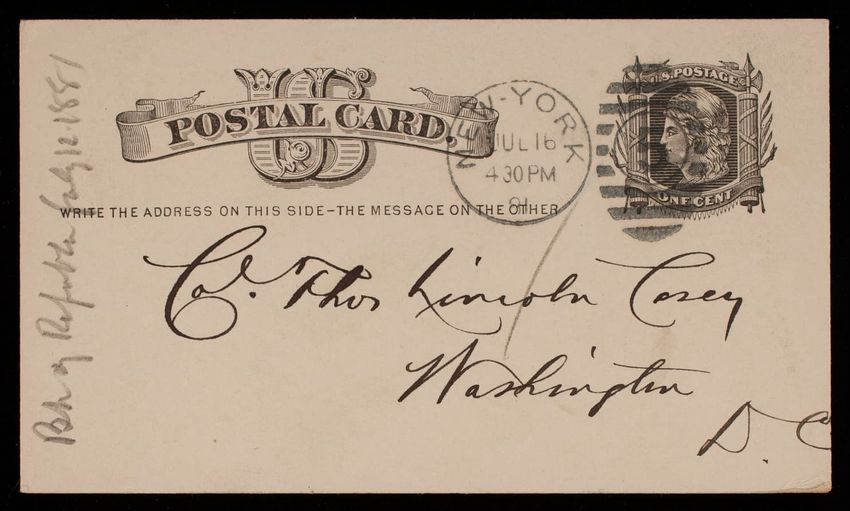 US
POSTAL CARD.
NEW-YORK
JUL 16
430 PM
81
U.S. POSTAGE
ONE CENT
WRITE THE ADDRESS ON THIS SIDE - THE MESSAGE ON THE OTHER
Col. Thos Lincoln Casey
Washington
D. C
Bk of Republic July 12 1881